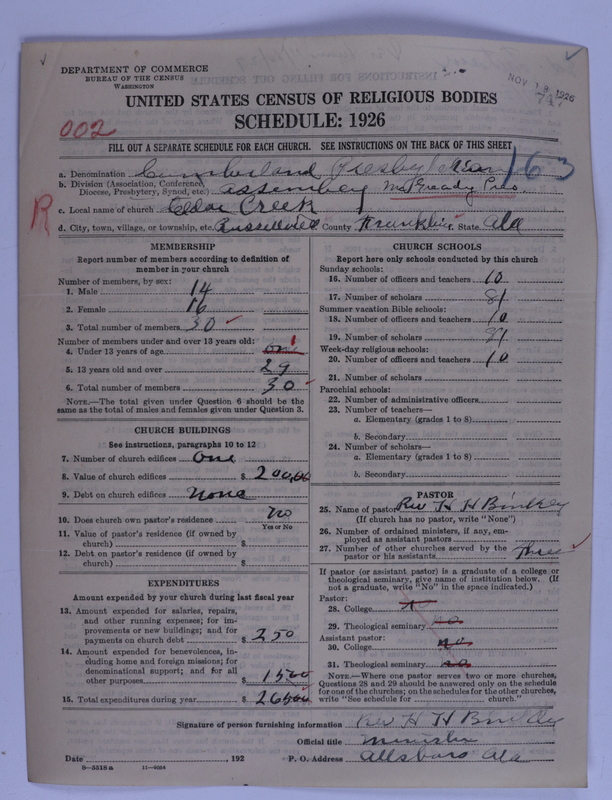 DEPARTMENT OF COMMERCE
BUREAU OF THE CENSUS
WASHINGTON
NOV 18 1926
747
UNITED STATES CENSUS OF RELIGIOUS BODIES
SCHEDULE: 1926
002
FILL OUT A SEPARATE SCHEDULE FOR EACH CHURCH. SEE INSTRUCTIONS ON THE BACK OF THIS SHEET
163
a. Denomination Cumberland Presbyterian
b. Division (Association, Conference, Diocese, Presbytery, Synod, etc.) assembley McGready Pres
R
c. Local name of church Cedar Creek
d. City, town, village, or township, etc. Russellville County Franklin State Ala
MEMBERSHIP
Report number of members according to definition of
member in your church
Number of members, by sex:
1. Male 14
2. Female 16
3. Total number of members 30
Number of members under and over 13 years old:
4. Under 13 years of age one 1
5. 13 years old and over 29
6. Total number of members 30
NOTE.—The total given under Question 6 should be the
same as the total of males and females given under Question 3.
CHURCH BUILDINGS
See instructions, paragraphs 10 to 12
7. Number of church edifices one
8. Value of church edifices $ 200.00
9. Debt on church edifices none
10. Does church own pastor's residence no
Yes or No
11. Value of pastor's residence (if owned by
church) $
12. Debt on pastor's residence (if owned by
church) $
EXPENDITURES
Amount expended by your church during last fiscal year
13. Amount expended for salaries, repairs,
and other running expenses; for im-
provements or new buildings; and for
payments on church debt $ 250
14. Amount expended for benevolences, in-
cluding home and foreign missions; for
denominational support; and for all
other purposes $ 1500
15. Total expenditures during year $ 26500
CHURCH SCHOOLS
Report here only schools conducted by this church
Sunday schools:
16. Number of officers and teachers 10
17. Number of scholars 81
Summer vacation Bible schools:
18. Number of officers and teachers 10
19. Number of scholars 81
Week-day religious schools:
20. Number of officers and teachers 10
21. Number of scholars
Parochial schools:
22. Number of administrative officers
23. Number of teachers—
a. Elementary (grades 1 to 8)
b. Secondary
24. Number of scholars—
a. Elementary (grades 1 to 8)
b. Secondary
PASTOR
25. Name of pastor Rev H H Binkley
(If church has no pastor, write "None")
26. Number of ordained ministers, if any, em-
ployed as assistant pastors
27. Number of other churches served by the
pastor or his assistants Three
If pastor (or assistant pastor) is a graduate of a college or
theological seminary, give name of institution below. (If
not a graduate, write "No" in the space indicated.)
Pastor:
28. College
29. Theological seminary no
Assistant pastor:
30. College no
31. Theological seminary no
NOTE.—Where one pastor serves two or more churches,
Questions 28 and 29 should be answered only on the schedule
for one of the churches; on the schedules for the other churches,
write "See schedule for church."
Signature of person furnishing information Rev H H Binkley
Official title Minister
Date , 192 P. O. Address Allsboro Ala
8-3318a 11-9024